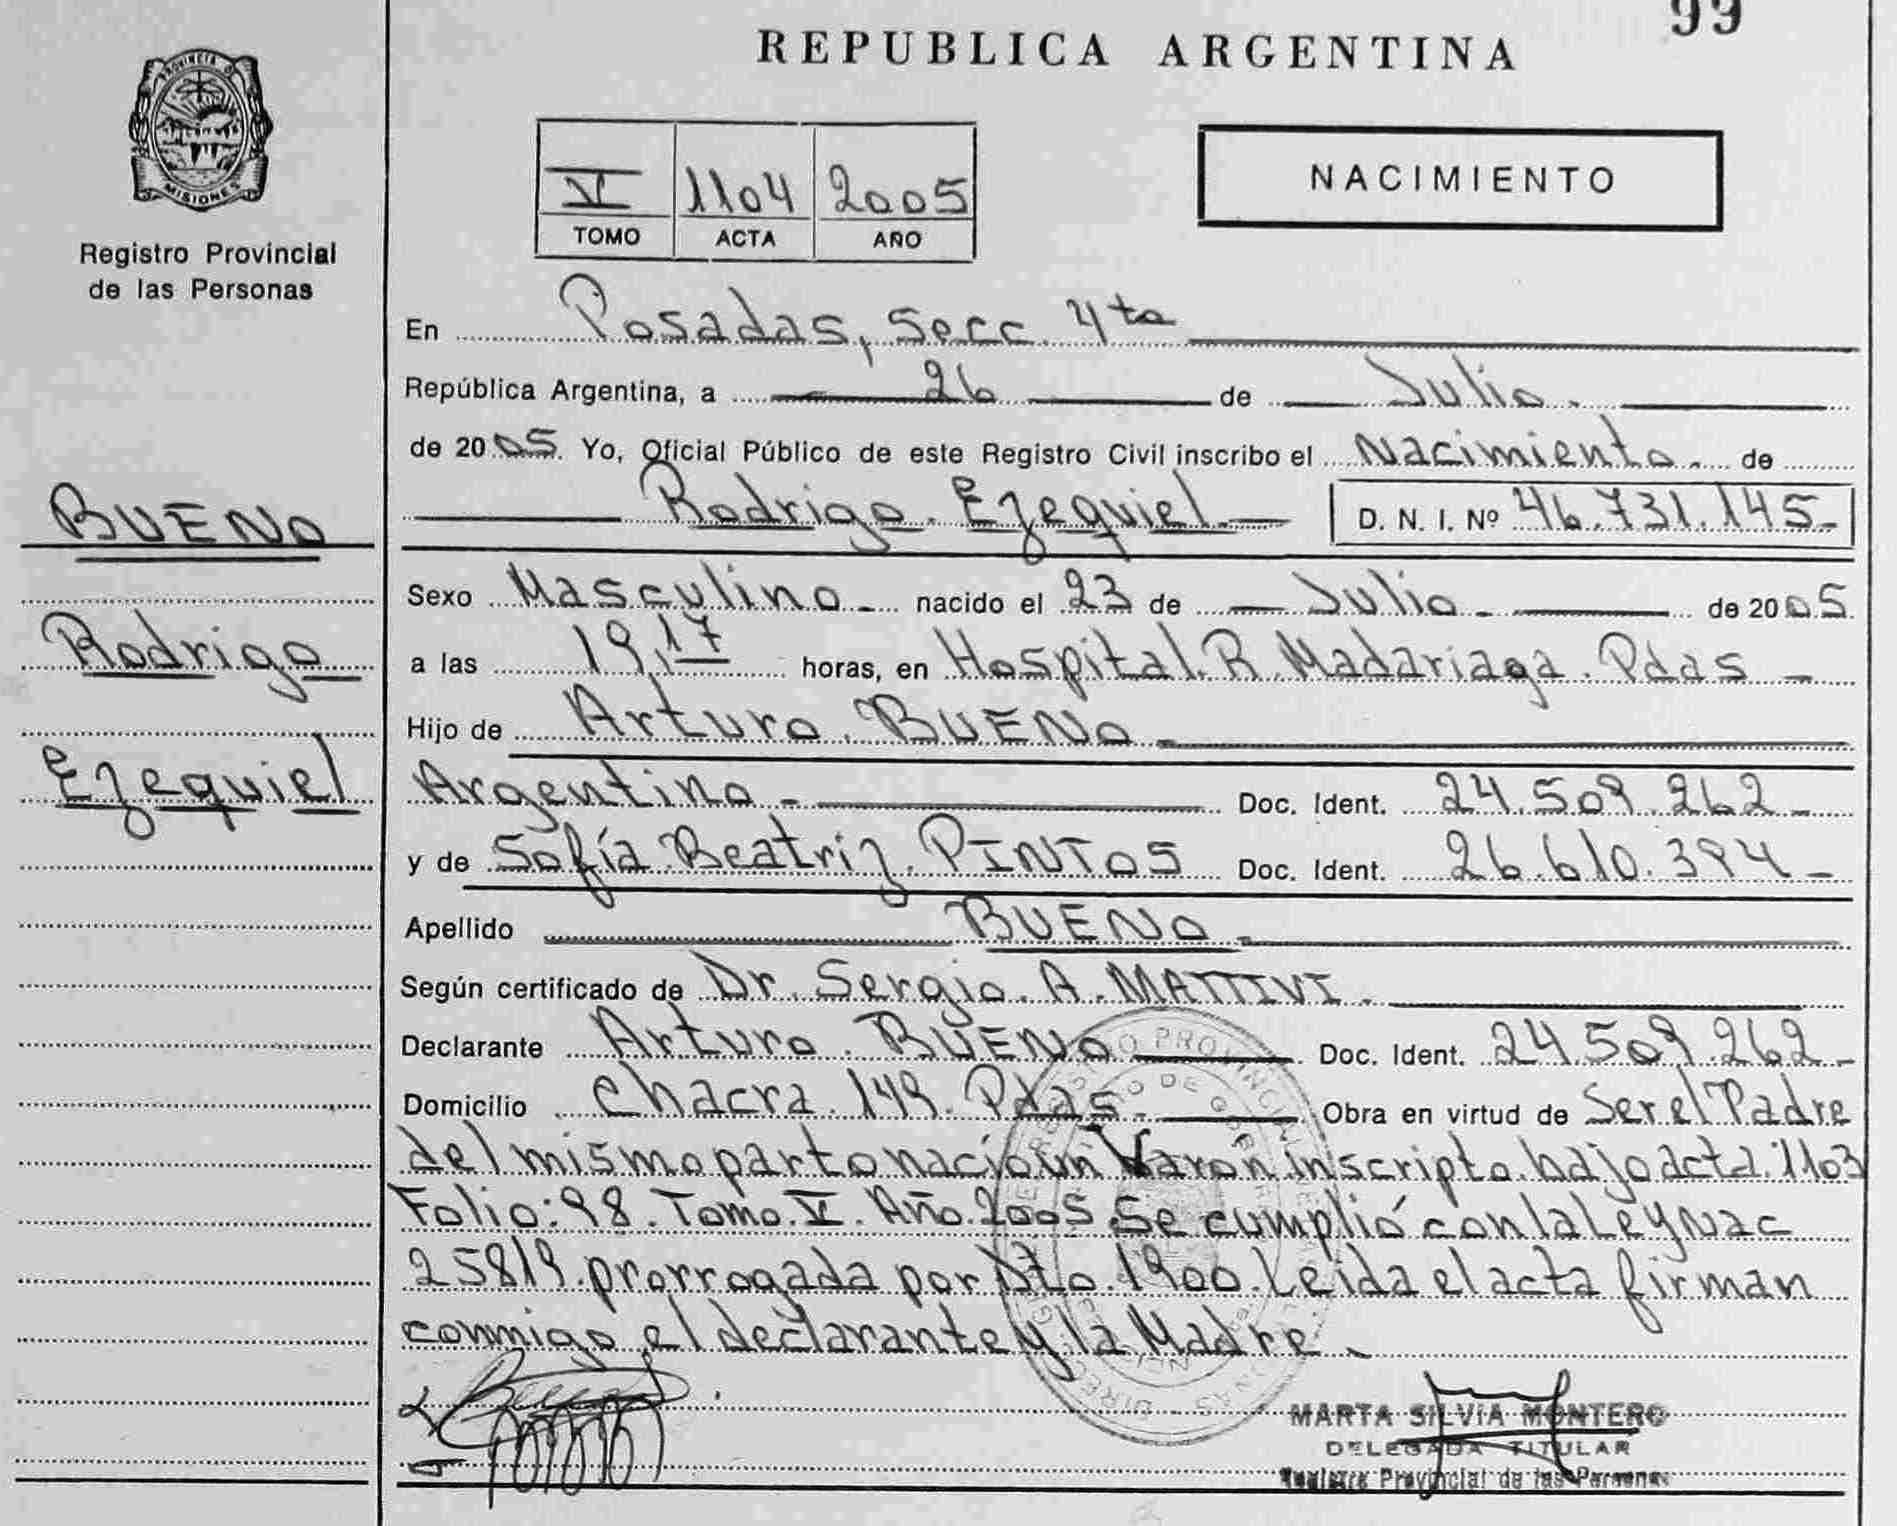 99
REPUBLICA ARGENTINA
PROVINCIA DE
MISIONES
Registro Provincial
de las Personas
V 1104 2005
TOMO ACTA AÑO
NACIMIENTO
En Posadas, Secc. 4ta
República Argentina, a 26 de Julio.
de 2005. Yo, Oficial Público de este Registro Civil inscribo el Nacimiento. de
Rodrigo. Ezequiel D. N. I. Nº 46.731.145
BUENO
Rodrigo
Ezequiel
Sexo Masculino nacido el 23 de Julio de 2005.
a las 19,17 horas, en Hospital. R. Madariaga. Pdas
Hijo de Arturo. BUENO
Argentino Doc. Ident. 24.509.262
y de Sofía. Beatriz. PINTOS Doc. Ident. 26.610.394
Apellido BUENO
Según certificado de Dr. Sergio. A. MATTIVI.
Declarante Arturo. BUENO Doc. Ident. 24.509.262
Domicilio Chacra. 149. Pdas Obra en virtud de Ser el Padre
del mismo parto nació un Varon inscripto. bajo acta. 1103
Folio: 98. Tomo. V. Año. 2005. Se cumplió con la Ley Nac
25819. prorrogada por Dto. 1900. Leida el acta firman
conmigo el declarante y la Madre.
MARTA SILVIA MONTERO
DELEGADA TITULAR
Registro Provincial de las Personas